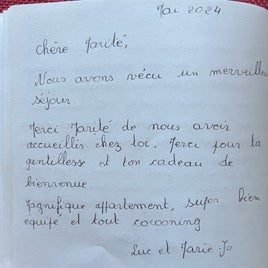 Mai 2024
Chère Marité,
Nous avons vécu un merveilleu
séjour.
Merci Marité de nous avoir
accueillis chez toi. Merci pour ta
gentillesse et ton cadeau de
bienvenue
Magnifique appartement, super bien
équipé et tout cocooning
Luc et Marie-Jo